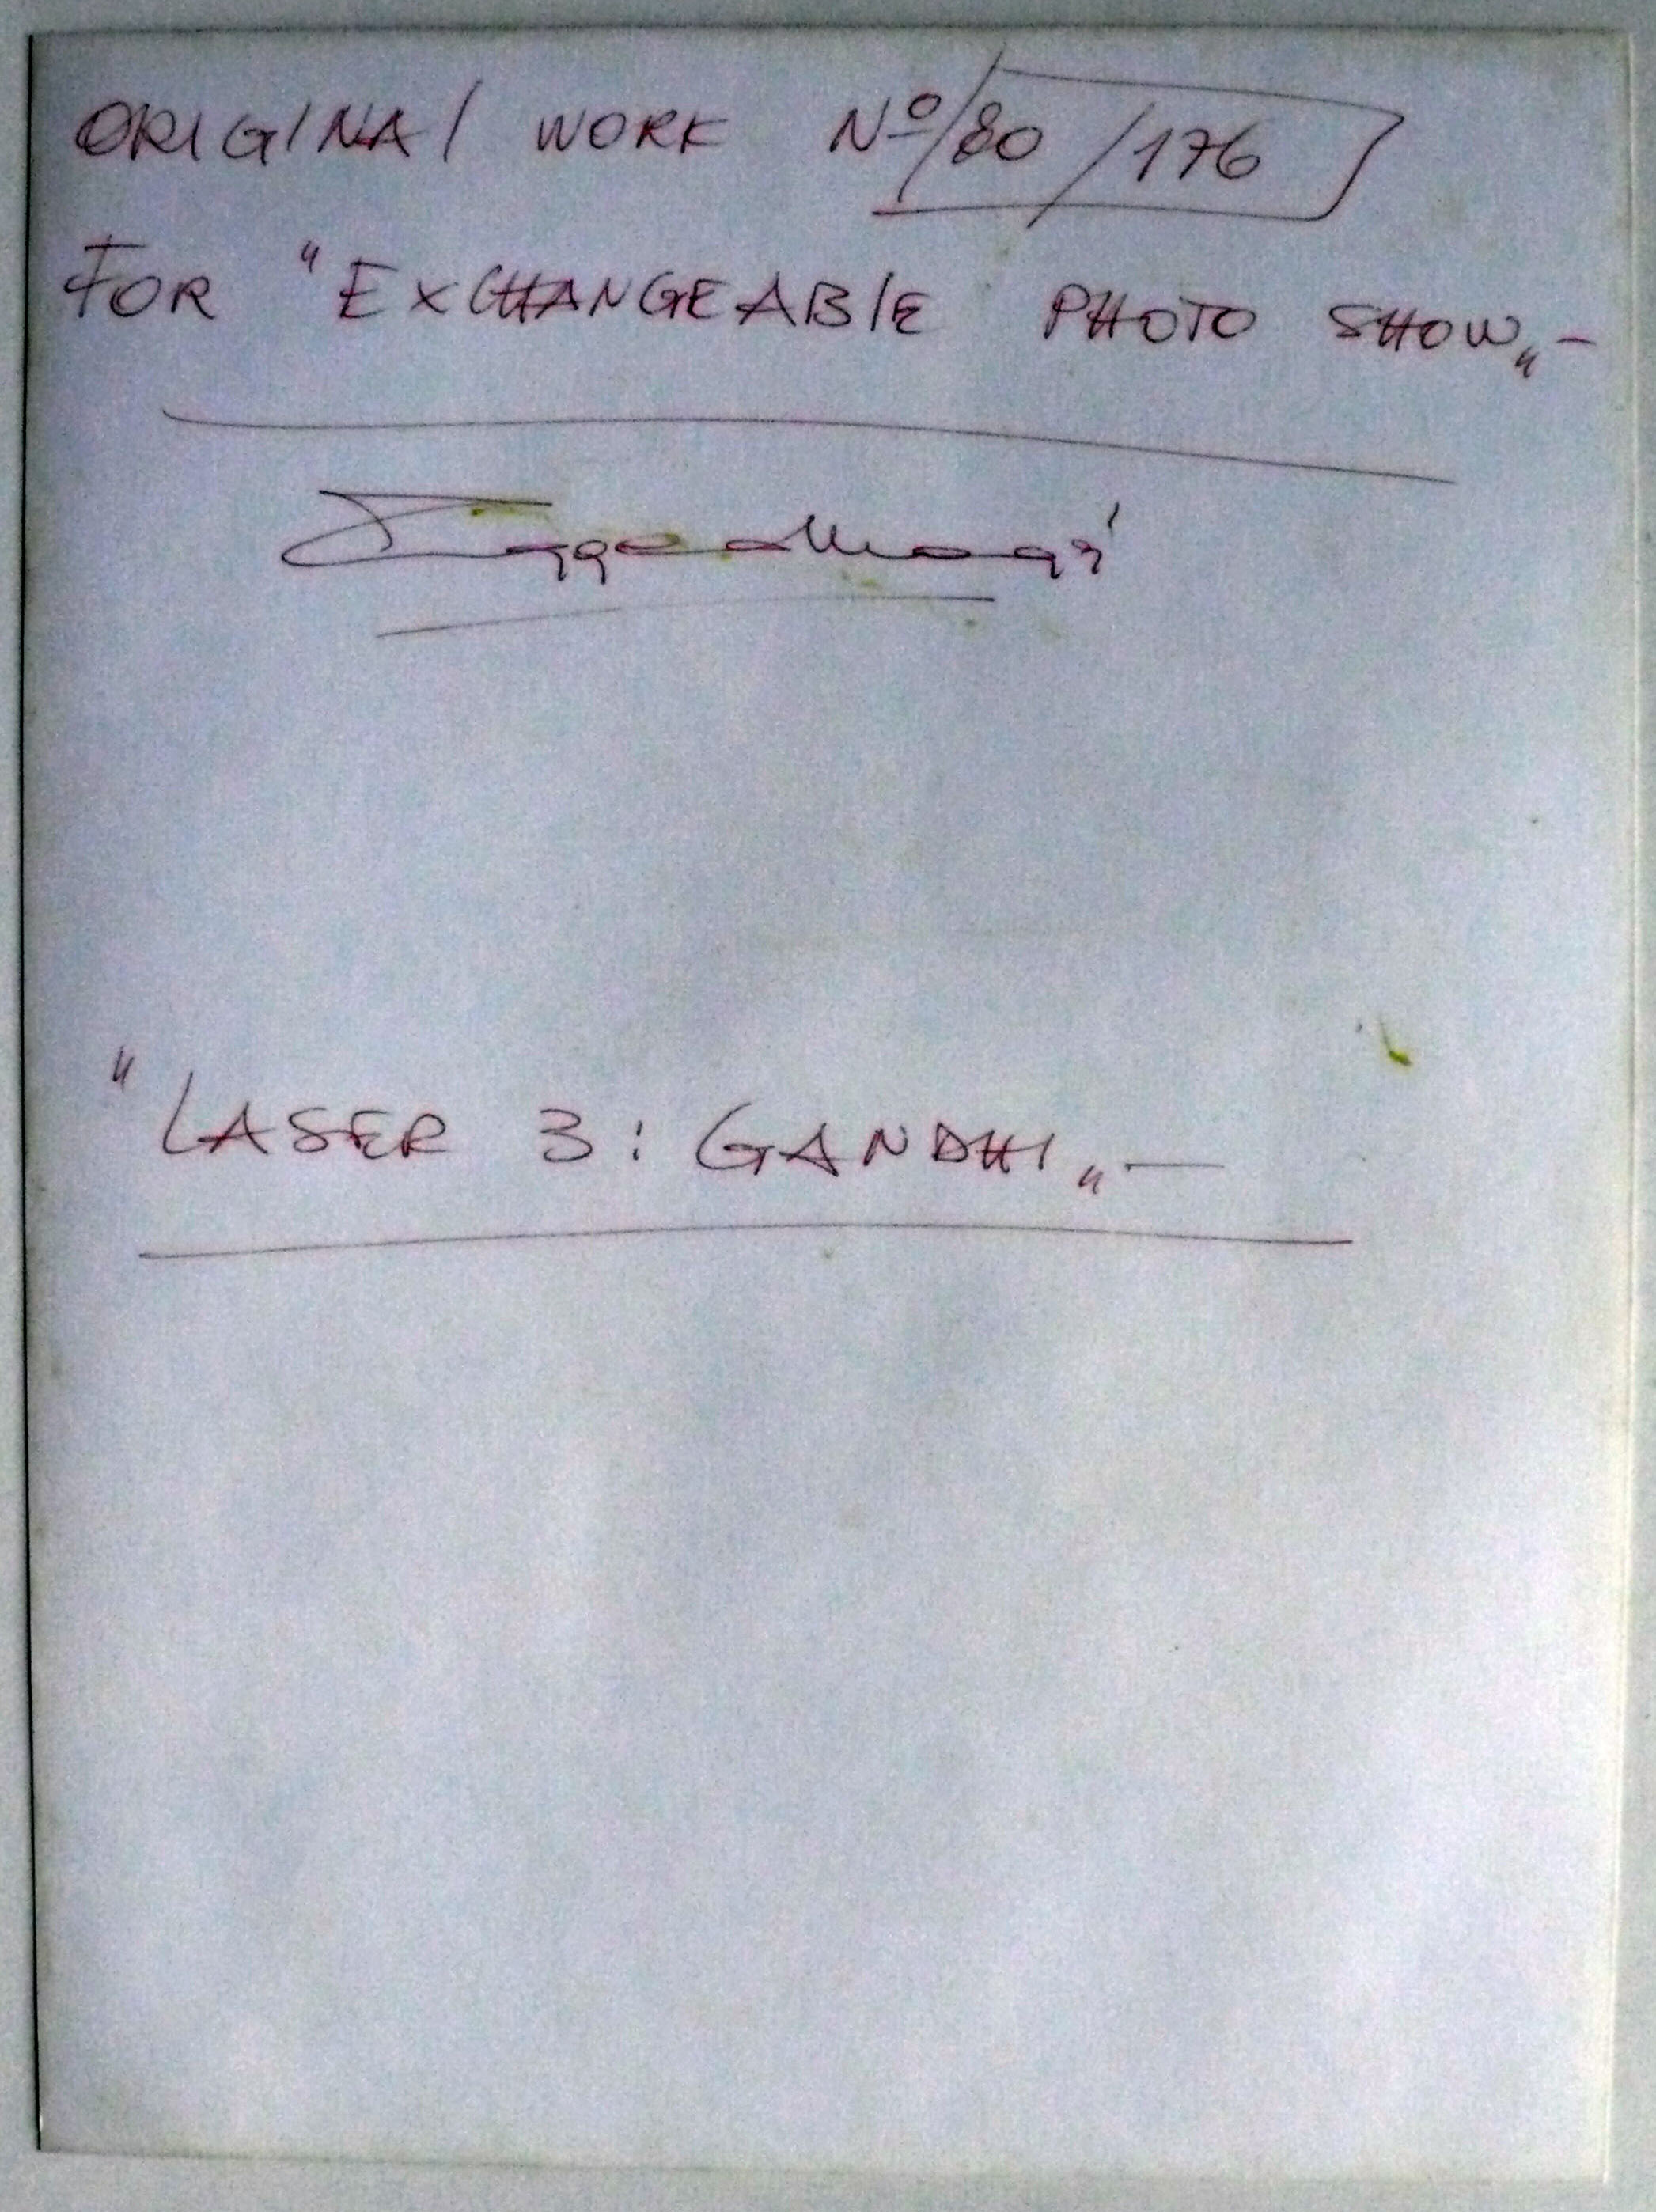 ORIGINAL WORK Nº/80/176
FOR "EXCHANGEABLE PHOTO SHOW„-
"LASER 3: GANDHI„—